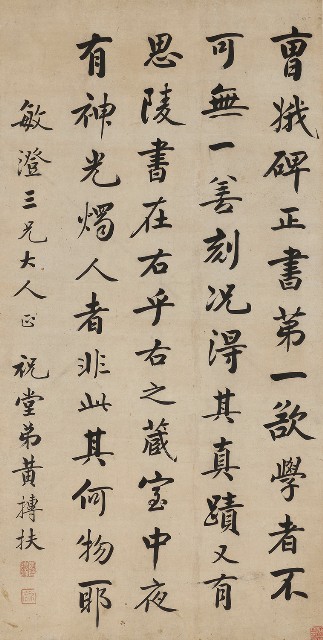 曹娥碑正書第一欲學者不
可無一善刻况得其真蹟又有
思陵書在右乎右之蔵室中夜
有神光燭人者非此其何物耶
敏澄三兄大人正 祝堂弟黄摶扶